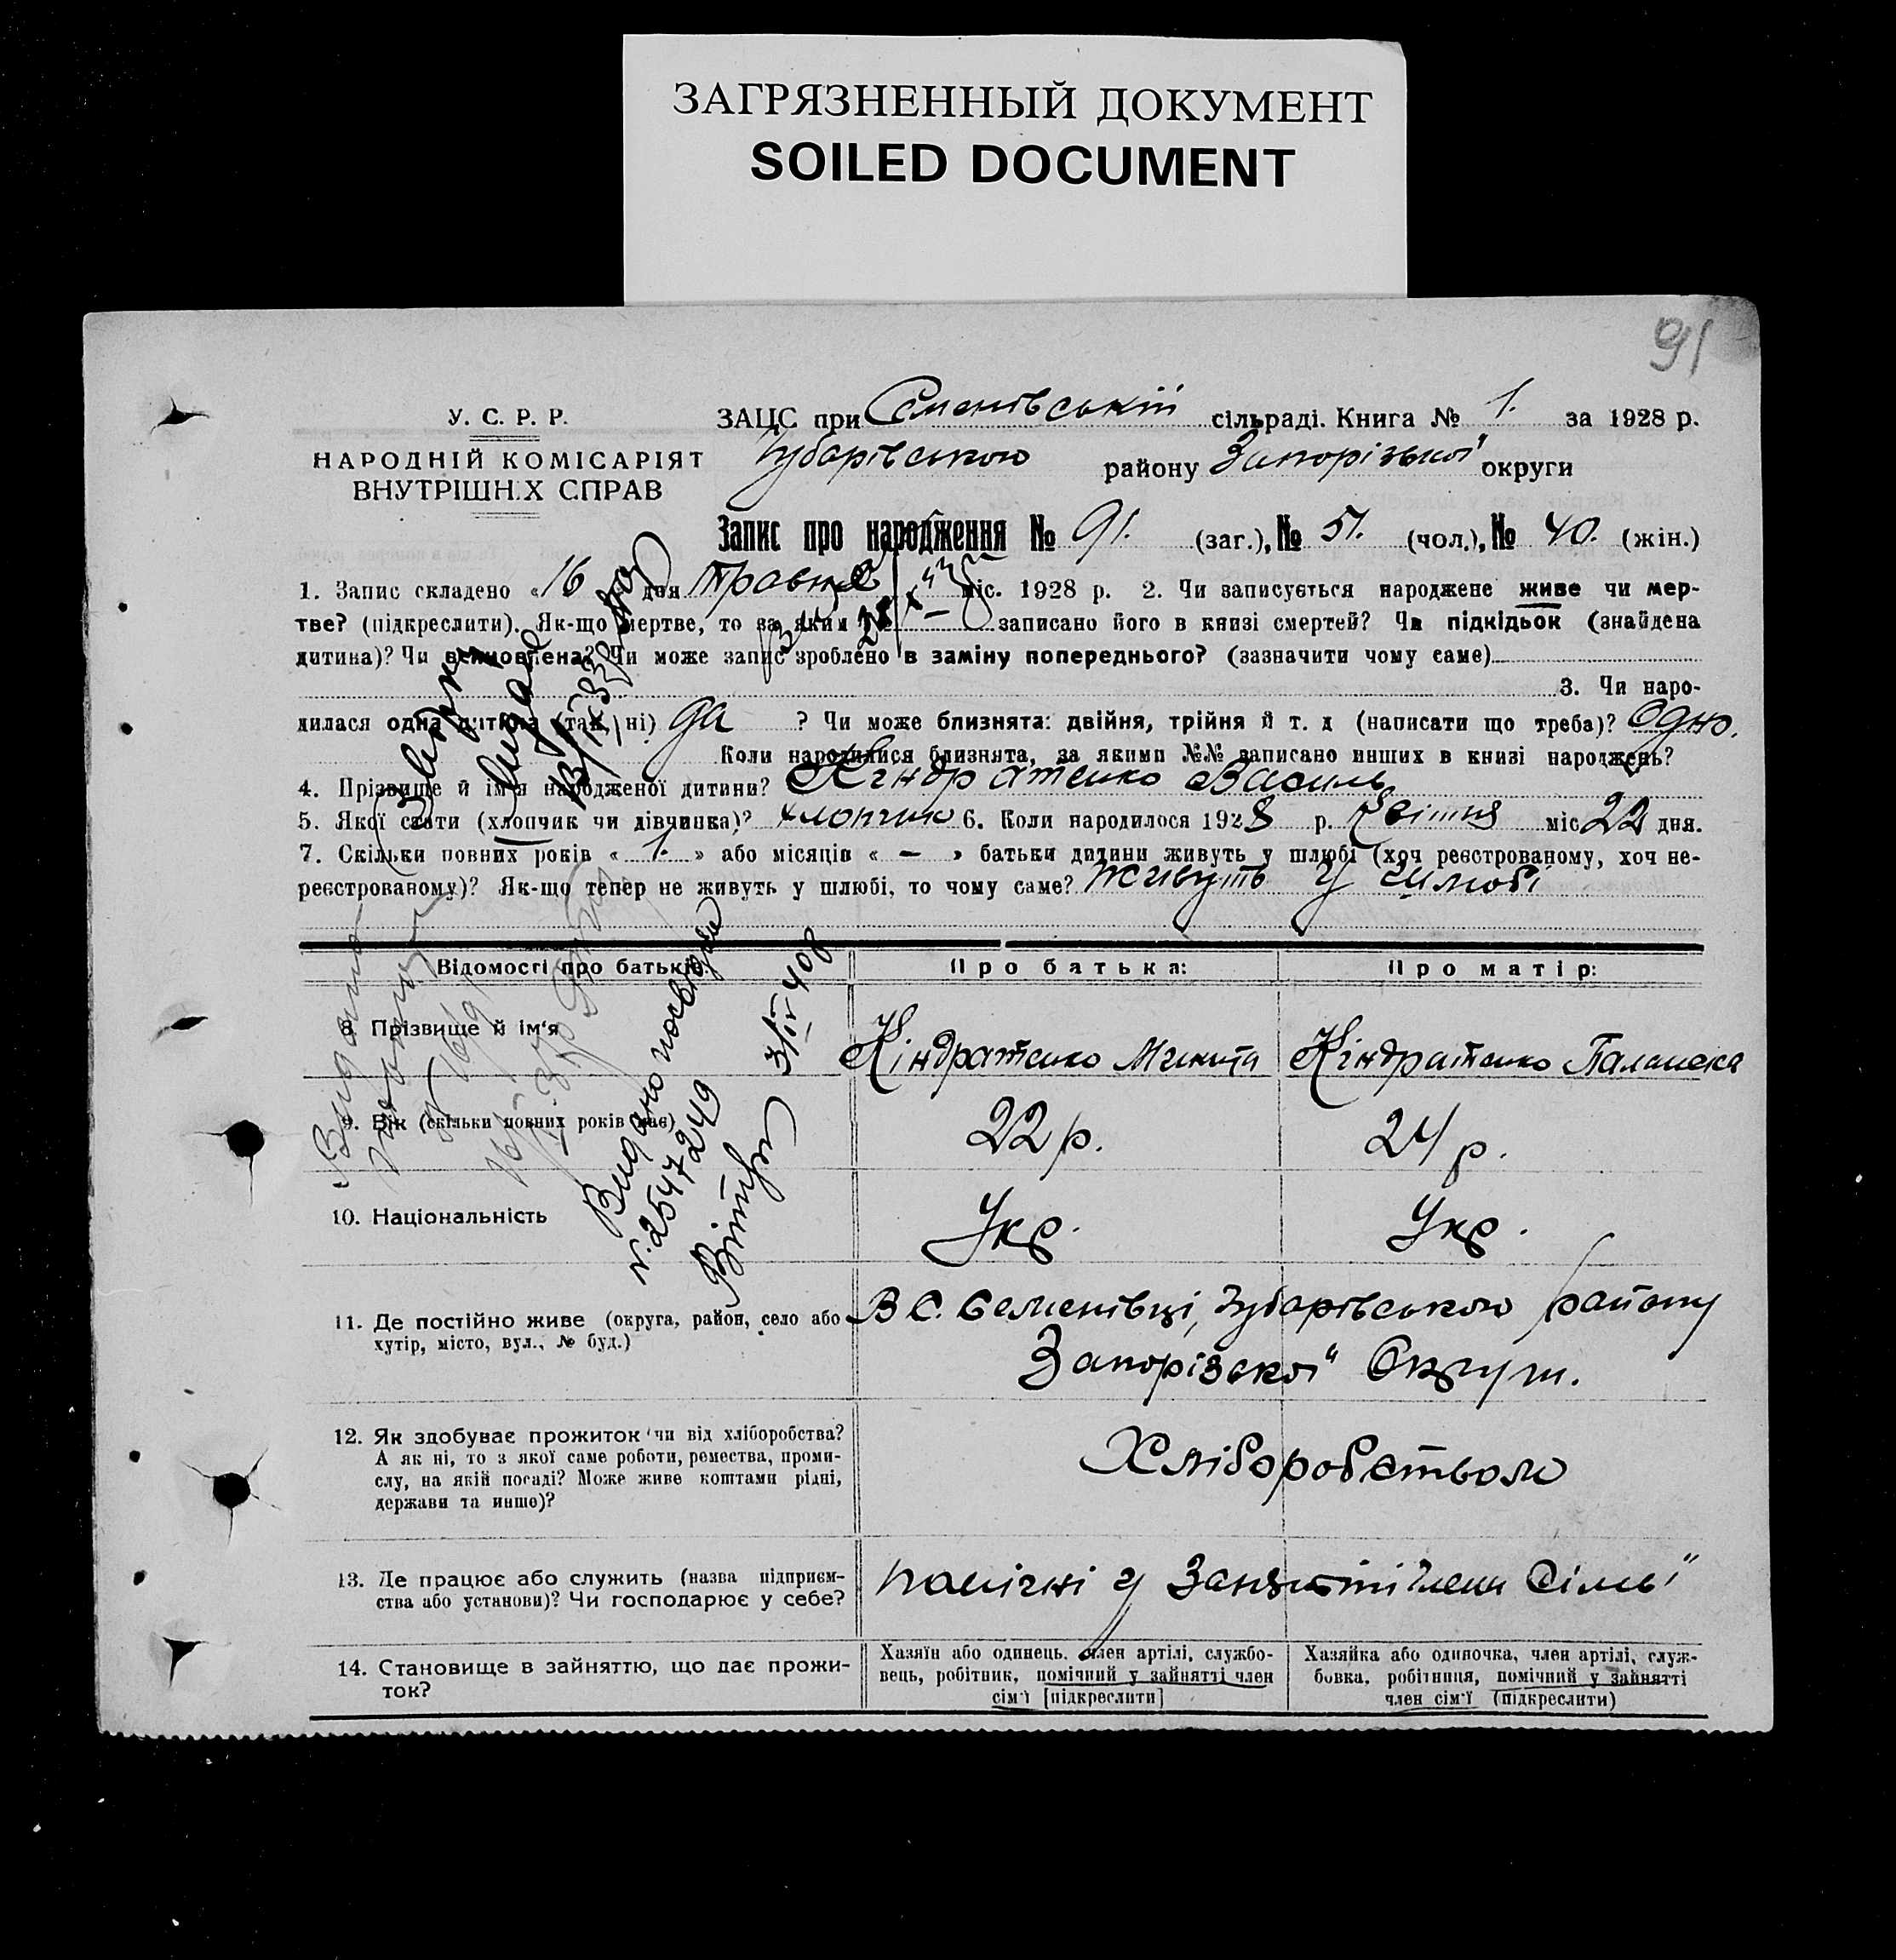 ЗАГРЯЗНЕННЫЙ ДОКУМЕНТ
SOILED DOCUMENT
91
У. С. Р. Р.
НАРОДНІЙ КОМІСАРІЯТ
ВНУТРІШН.Х СПРАВ
ЗАЦС при Семенівській сільраді. Книга № 1. за 1928 р.
Чубарівського району Запорізької округи
Запис про народження № 91. (заг.), № 51. (чол.), № 40. (жін.)
1. Запис складено « 16 дня травня міс. 1928 р. 2. Чи записується народжене живе чи мер-
тве? (підкреслити). Як-що мертве, то за яким № записано його в книзі смертей? Чи підкідьок (знайдена
дитина)? Чи Чи може запис зроблено в заміну попереднього? (зазначити чому саме)
3. Чи наро-
дилася одна дитина (так, ні) да ? Чи може близнята: двійня, трійня й т. д (написати що треба)? Одно.
Коли народилися близнята, за якими №№ записано инших в книзі народжень?
4. Прізвище й ім'я народженої дитини? Кіндратенко Василь
5. Якої стати (хлопчик чи дівчинка)? хлопчик 6. Коли народилося 1928 р. Квітня міс 22 дня.
7. Скільки повних років « 1. » або місяців « — » батьки дитини живуть у шлюбі (хоч реєстрованому, хоч не-
реєстрованому)? Як-що тепер не живуть у шлюбі, то чому саме? живуть у шлюбі
Відомості про батьків: Про батька: Про матір:
8. Прізвище й ім'я Кіндратенко Микита Кіндратенко Палажка
9. Вік (скільки повних років має) 22 р. 24 р.
10. Національність Укр. Укр.
Видано посвідку
№ 2547249
3/IV 40р
11. Де постійно живе (округа, район, село або хутір, місто, вул., № буд.)
В С. Семенівці, Чубарівського району
Запорізької Округи.
12. Як здобуває прожиток чи від хліборобства?
А як ні, то з якої саме роботи, ремества, проми-
слу, на якій посаді? Може живе коштами рідні,
держави та инше)?
Хліборобством
13. Де працює або служить (назва підприєм-
ства або установи)? Чи господарює у себе?
помічні у Занятті члени Сімьї
14. Становище в зайняттю, що дає прожи-
ток?
Хазяїн або одинець, член артілі, службо-
вець, робітник, помічний у зайнятті член
сім'ї [підкреслити]
Хазяйка або одиночка, член артілі, служ-
бовка, робітниця, помічний у зайнятті
член сім'ї (підкреслити)